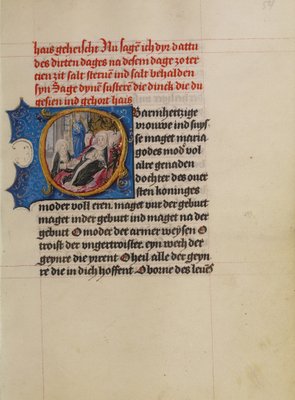 hais geherscht Nu sagen ich dyr dattu
des dirten dages na desem dage zo ter
tien zit salt sterue ind salt behalden
syn Sage dyne susteren die dinck die du
gesien ind gehoit hais
Barmhertzige
vrouwe ind suysse
maget maria
godes mod vol
alre genaden
dochter des over
sten koninges
moder voll eren. maget vur der geburt
maget inder geburt ind maget na der
geburt O moder der armer weysen O
troist der vngetroister. eyn wech der
geynre die yrrent O heil alle der geyn
re die in dich hoffent O borne des leues